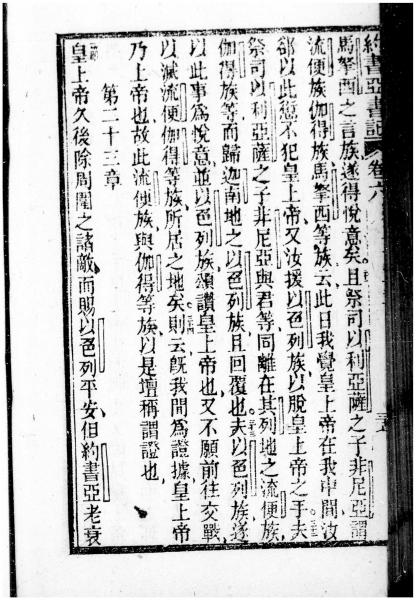 約書亞書記 卷六
馬拏西之言族遂得悅意矣且祭司以利亞薩之子非尼亞謂
流便族伽得族馬拏西等族云此日我覺皇上帝在我中間汝
卻以此愆不犯皇上帝又汝援以色列族以脫皇上帝之手夫
祭司以利亞薩之子非尼亞與君等同離在其列地之流便族
伽得族等而歸迦南地之以色列族且回覆也夫以色列族遂
以此事爲悅意並以色列族頌讚皇上帝也又不願前往交戰
以滅流便伽得等族所居之地矣則云旣我間爲證據皇上帝
乃上帝也故此流便族與伽得等族以是壇稱謂證也
第二十三章
皇上帝久後除周圍之諸敵而賜以色列平安但約書亞老衰